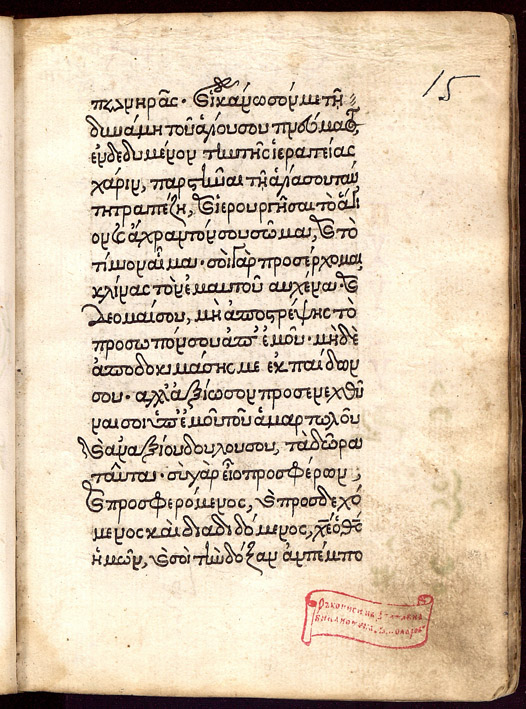 15
πονηρᾶς · καὶ ἱκάνωσόν με τῆ
δυνάμη τοῦ ἁγίου σου πνεύματος,
ἐνδεδυμένον τὴν τῆς ἱερατείας
χάριν, παραστῆναι τῆ ἁγία σου ταύ
τη τραπέζη, καὶ ἱερουργῆσαι τὸ ἅγι
ον καὶ ἄχραντόν σου σῶμα, καὶ τὸ
τίμιον αἷμα · σοὶ γὰρ προσέρχομαι
κλίνας τὸν ἐμαυτοῦ αυχένα · καὶ
δέομαί σου, μὴ ἀποστρέψης τὸ
προσωπόν σου ἀπ' ἐμοῦ · μὴδὲ
ἀποδοκιμάσης με ἐκ παίδων
σου · αλλ' ἀξίωσον προσενεχθῆ
ναι σοι ὑπ' ἐμοῦ τοῦ ἁμαρτωλοῦ
καὶ ἀναξίου δούλου σου, τὰ δῶρα
ταῦτα · σὺ γὰρ εἶ ὁ προσφέρων,
καὶ προσφερόμενος, καὶ προσδεχό
μενος καὶ διαδιδόμενος, χε ὁ θς
ἡμῶν, καὶ σοὶ τὴν δόξαν ἀνπέμπο